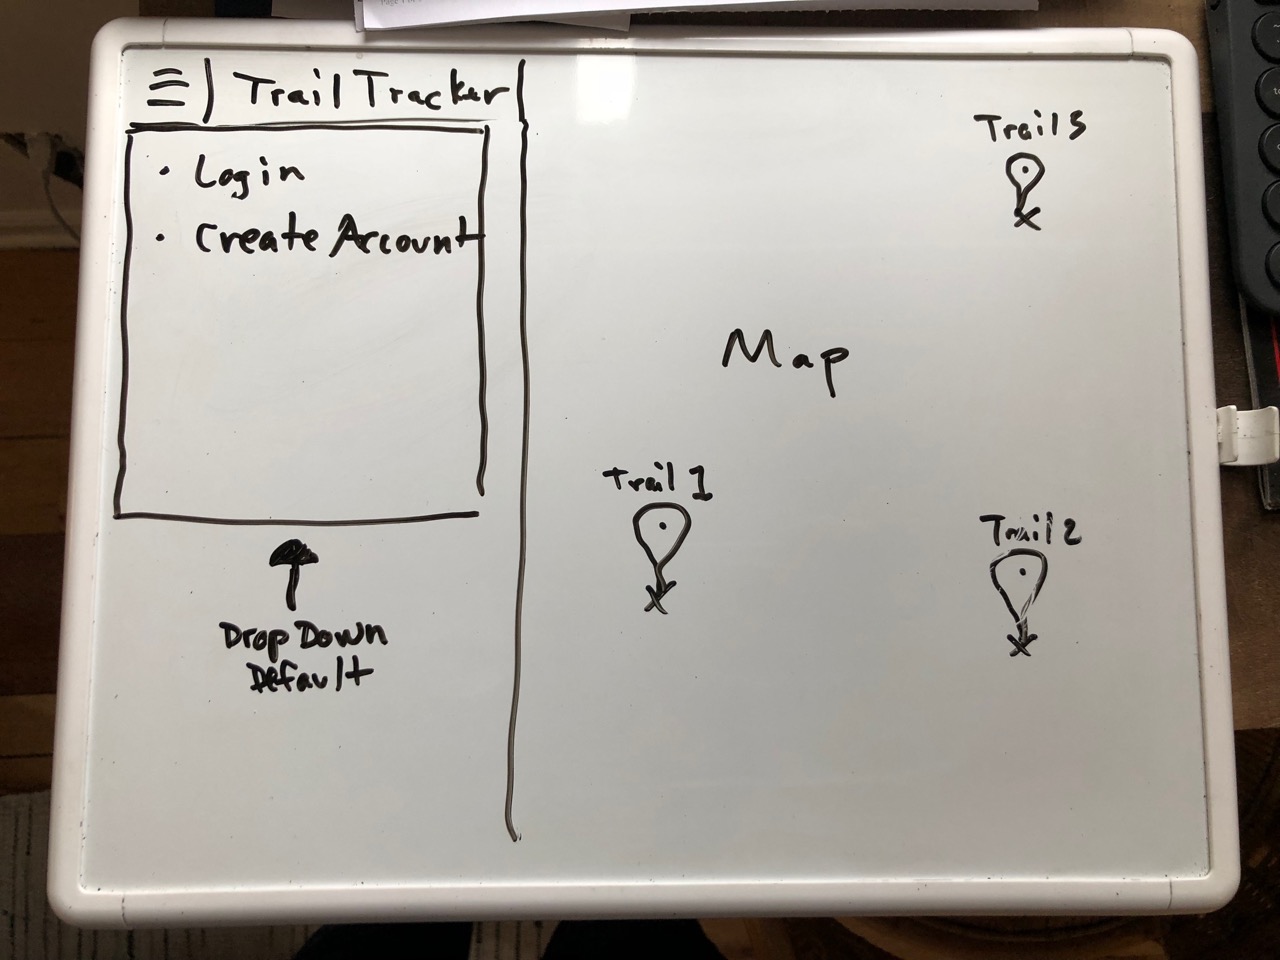 Trail Tracker
• Login
• Create Account
Drop Down
Default
Map
Trail 3
Trail 1
Trail 2